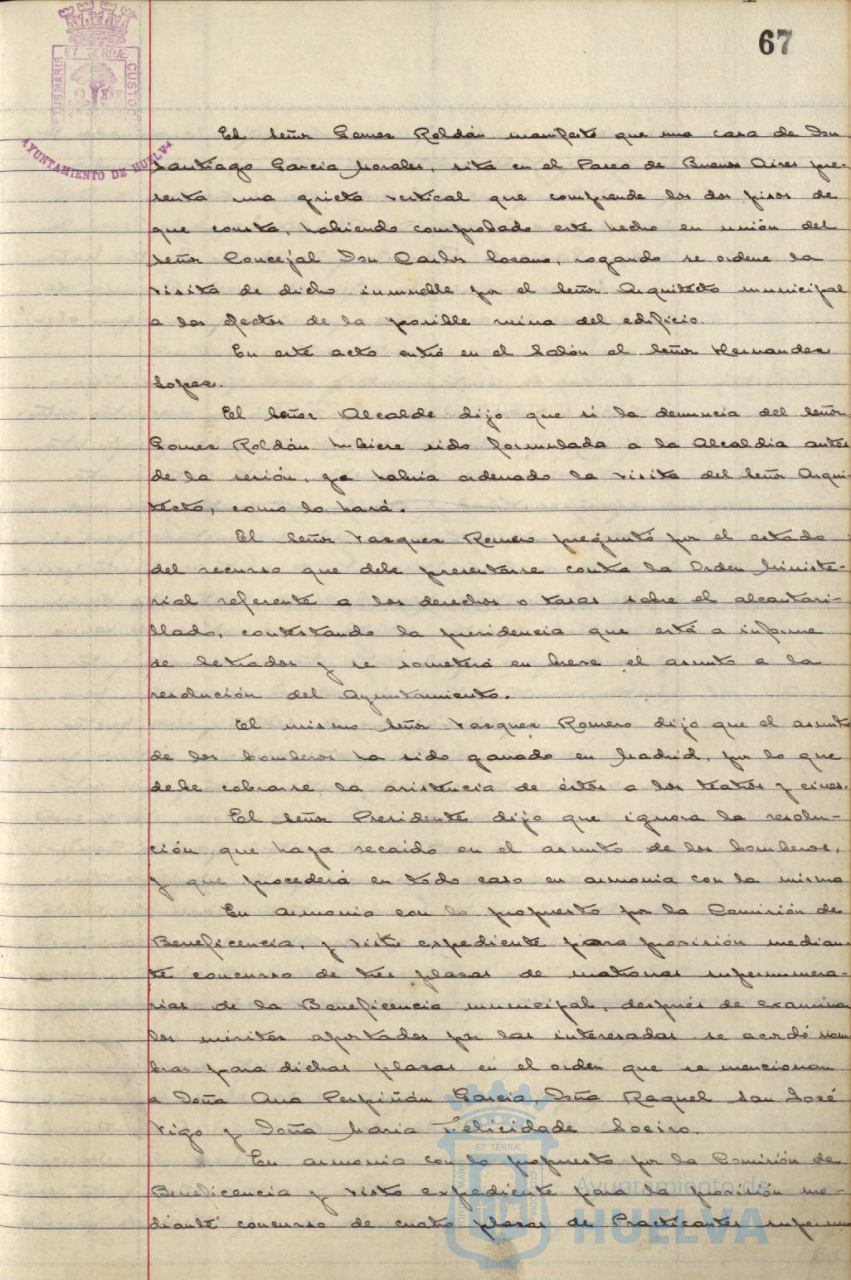 67
ET TERRÆ
CUSTO
AYUNTAMIENTO DE HUELVA
El Señor Gomez Roldán manifestó que una casa de Don
Santiago Garcia Morales, sita en el Paseo de Buenos Aires pre-
senta una grieta vertical que comprende los dos pisos de
que consta, habiendo comprobado este hecho en unión del
Señor Concejal Don Carlos Lozano, rogando se ordene la
visita de dicho inmueble por el Señor Arquitecto municipal
a los efectos de la posible ruina del edificio.
En este acto entró en el Salón el Señor Hernandez
Lopez.
El Señor Alcalde dijo que si la denuncia del Señor
Gomez Roldán hubiere sido formulada a la Alcaldia antes
de la sesión, ya habria ordenado la visita del Señor Arqui-
tecto, como lo hará.
El Señor Vazquez Romero preguntó por el estado
del recurso que debe presentarse contra la Orden Ministe-
rial referente a los derechos o tasas sobre el alcantari-
llado, contestando la presidencia que está a informe
de letrados y se someterá en breve el asunto a la
resolución del Ayuntamiento.
El mismo Señor Vazquez Romero dijo que el asunto
de los bomberos ha sido ganado en Madrid, por lo que
debe cobrarse la asistencia de éstos a los teatros y cines.
El Señor Presidente dijo que ignora la resolu-
ción que haya recaido en el asunto de los bomberos,
y que procederá en todo caso en armonia con la misma
En armonia con lo propuesto por la Comisión de
Beneficencia, y visto expediente para provisión median-
te concurso de tres plazas de matronas supernumera-
rias de la Beneficencia municipal, después de examinar
los méritos aportados por las interesadas se acordó nom
brar para dichas plazas en el orden que se mencionan
a Doña Ana Perpiñán Garcia, Doña Raquel San José
Vigo y Doña Maria Felicidade Soeiro.
En armonia con lo propuesto por la Comisión de
Beneficencia y visto expediente para la provisión me-
diante concurso de cuatro plazas de Practicantes supernu
ET TERRÆ
Ayuntamiento de
HUELVA